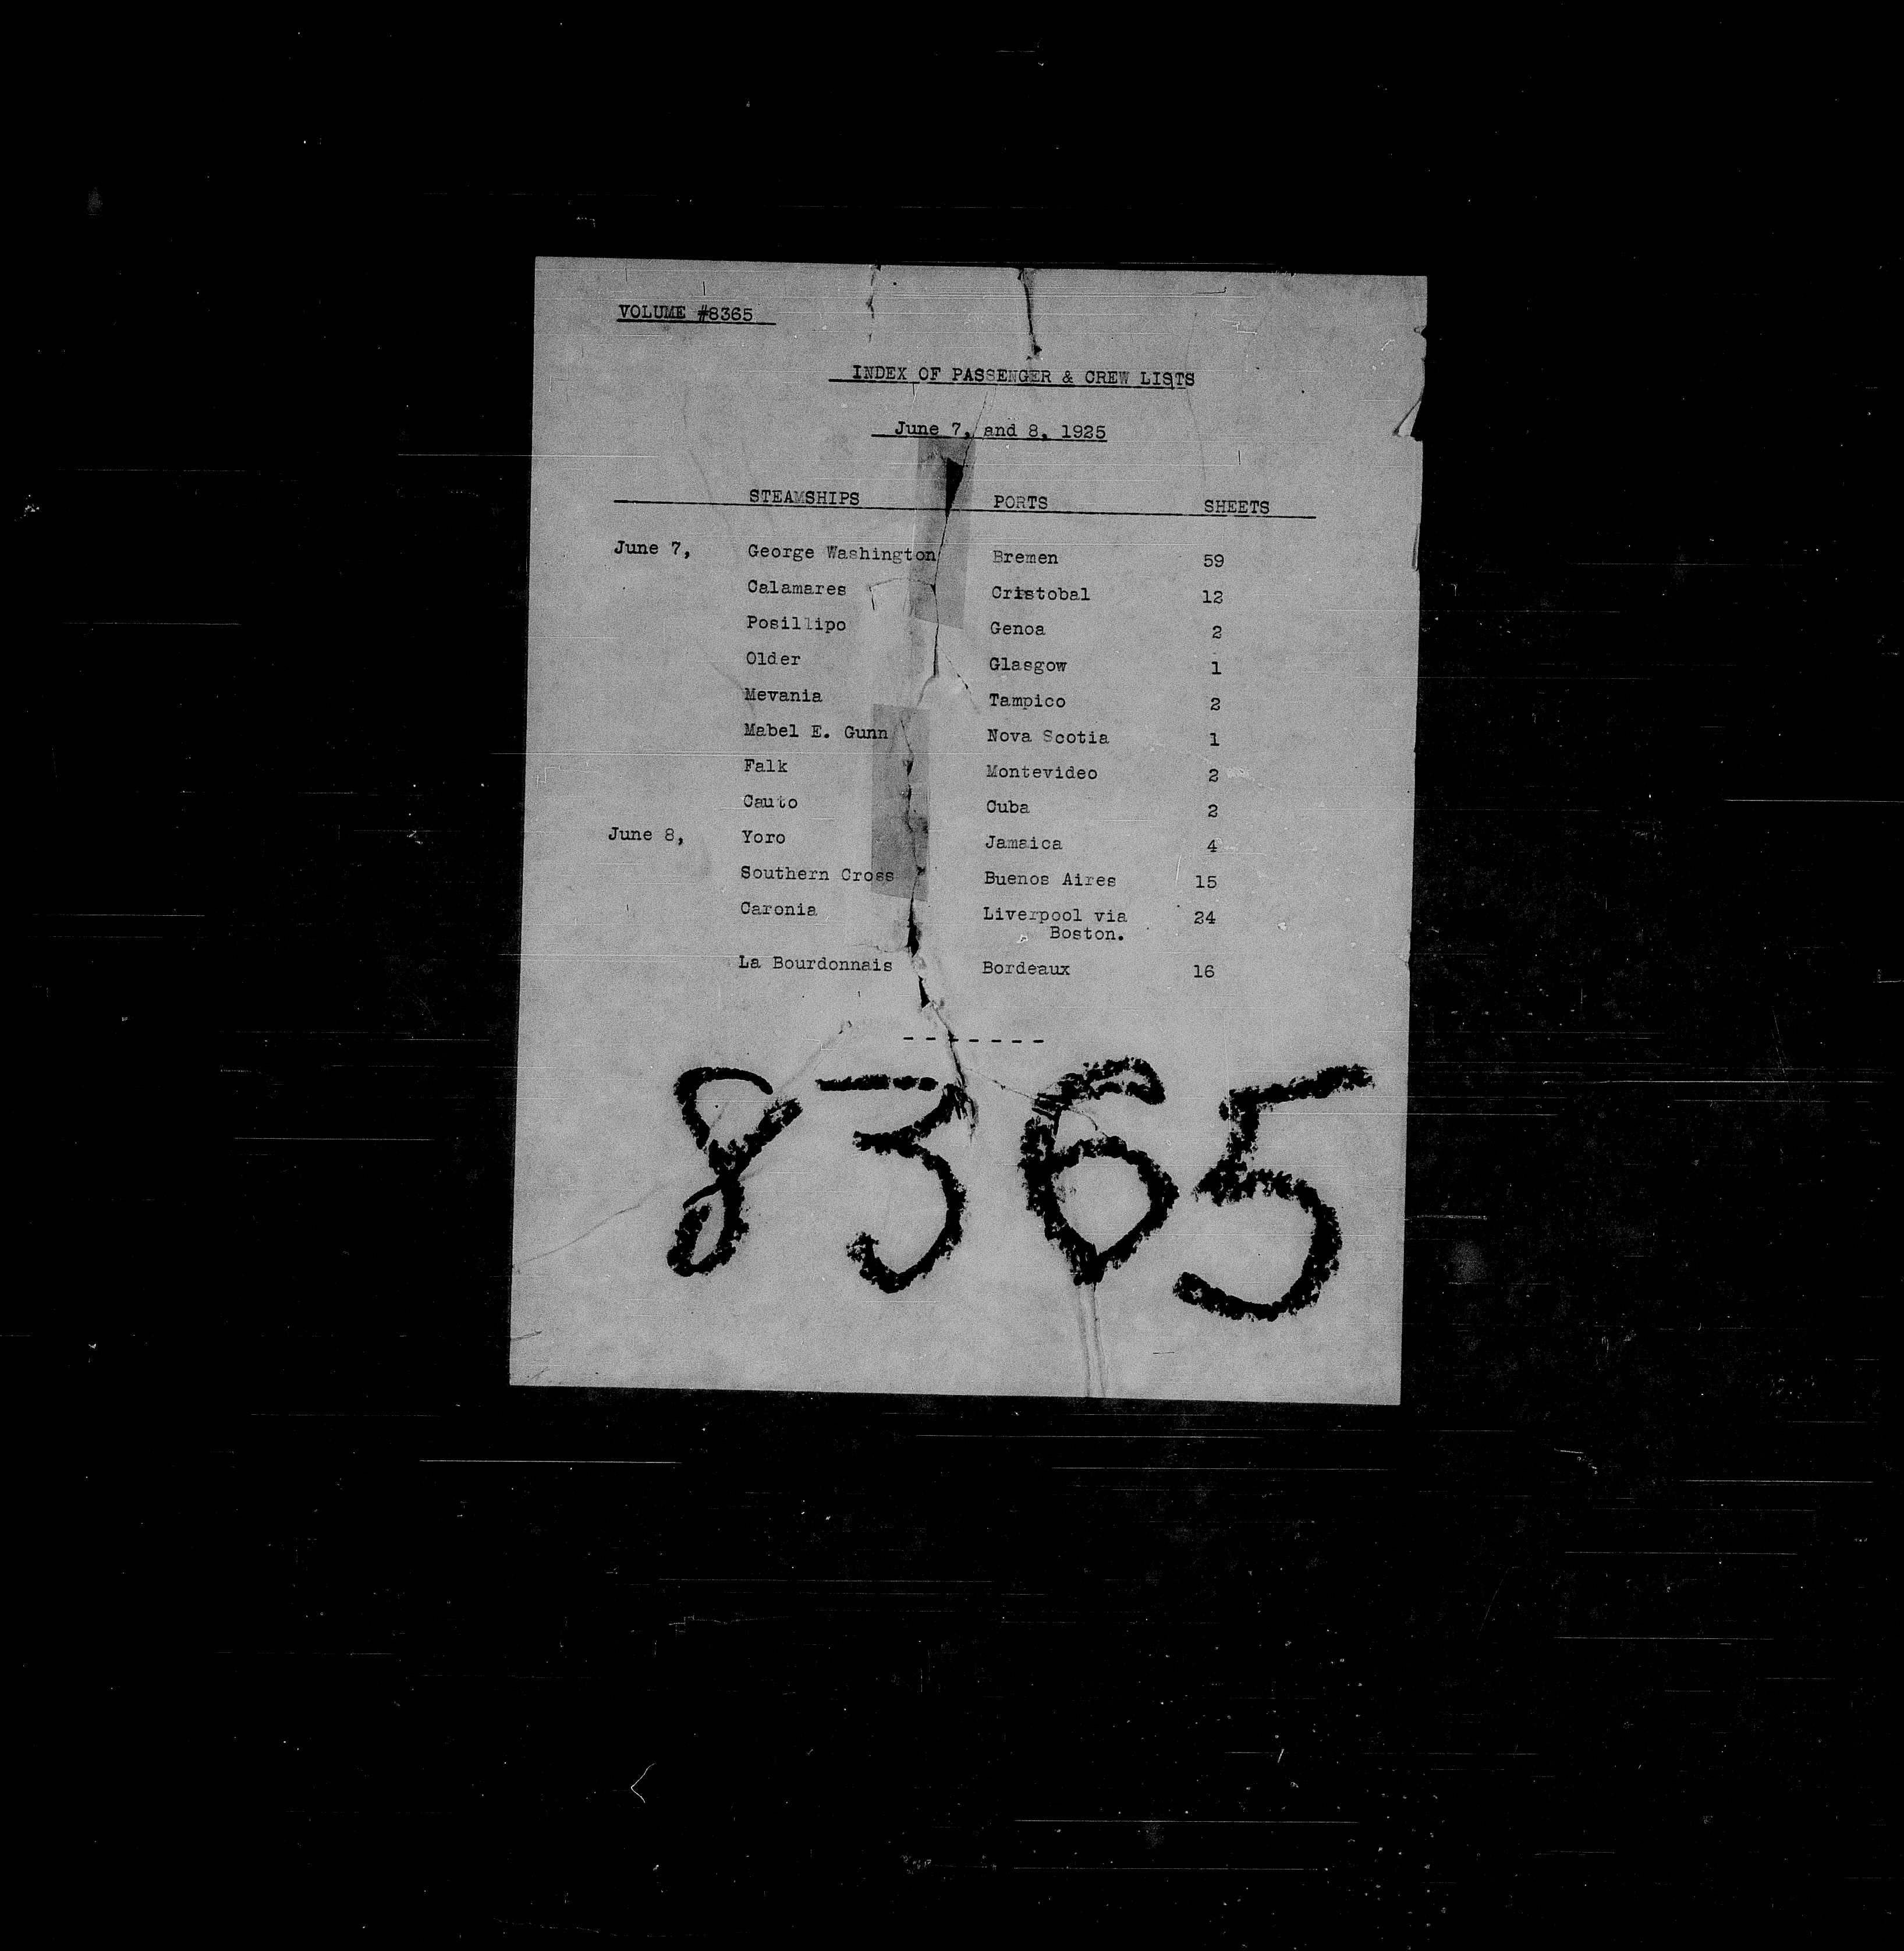 VOLUME #8365
INDEX OF PASSENGER & CREW LISTS
June 7, and 8, 1925
STEAMSHIPS PORTS SHEETS
June 7, George Washington Bremen 59
Calamares Cristobal 12
Posillipo Genoa 2
Older Glasgow 1
Mevania Tampico 2
Mabel E. Gunn Nova Scotia 1
Falk Montevideo 2
Cauto Cuba 2
June 8, Yoro Jamaica 4
Southern Cross Buenos Aires 15
Caronia Liverpool via 24
Boston.
La Bourdonnais Bordeaux 16
- - - - - - -
8365